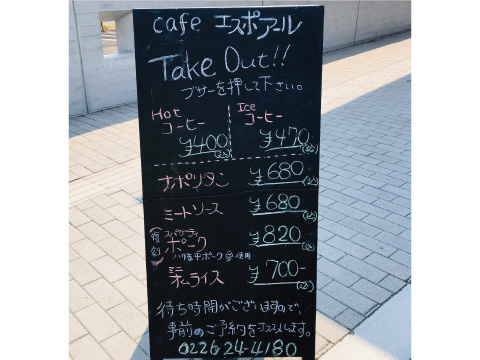 cafe エスポアール
Take Out!!
ブザーを押して下さい。
Hot
コーヒー
¥400
(込)
Ice
コーヒー
¥470
(込)
ナポリタン ¥680
(込)
ミートソース ¥680
(込)
復刻
スパゲッティ
ポーク ¥820
(込)
八幡平ポーク 使用
ミニ
オムライス ¥700-
(込)
待ち時間がございますので、
事前のご予約をオススメします。
0226-24-4180